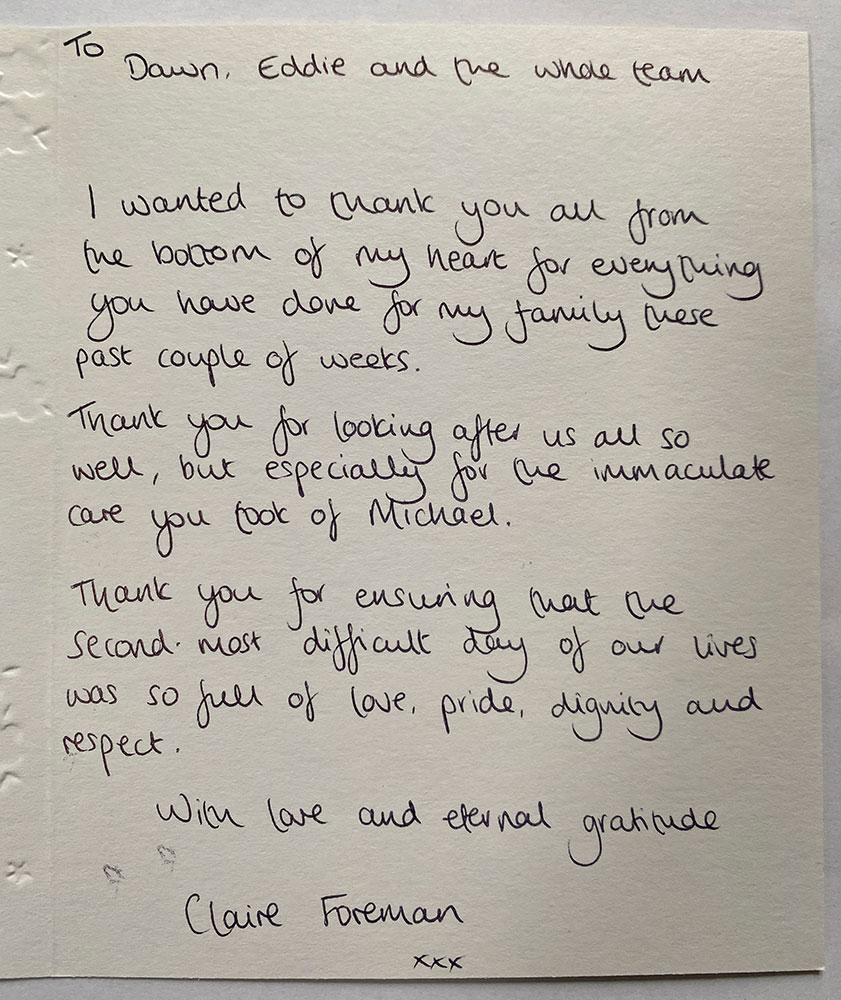 To
Dawn, Eddie and the whole team
I wanted to thank you all from
the bottom of my heart for everything
you have done for my family these
past couple of weeks.
Thank you for looking after us all so
well, but especially for the immaculate
care you took of Michael.
Thank you for ensuring that the
second most difficult day of our lives
was so full of love, pride, dignity and
respect.
With love and eternal gratitude
Claire Foreman
xxx